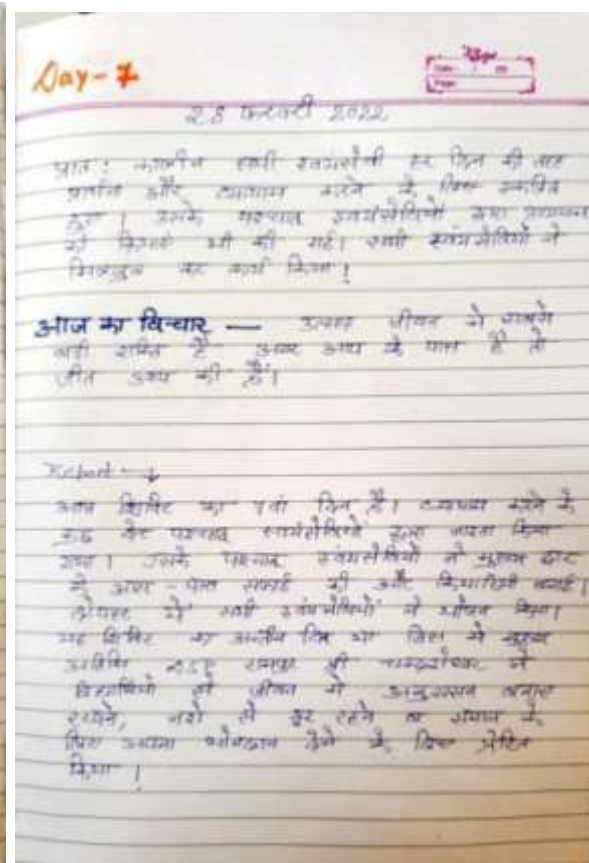 Day - 7
28 फरवरी 2022
प्रात: कालीन सभी स्वयंसेवी हर दिन की तरह
प्रार्थना और व्यायाम करने के लिए एकत्रित
हुए। उसके पश्चात स्वयंसेवियों द्वारा
की क्रियाएं भी की गई। सभी स्वयंसेवियों ने
मिलजुल कर कार्य किया।
आज का विचार — उत्साह जीवन में सबसे
बड़ी शक्ति है अगर आप के पास है तो
जीत आप की है।
Report →
आज शिविर का 7वां दिन है। व्यायाम करने के
कुछ देर पश्चात स्वयंसेवियों द्वारा नाश्ता किया
गया। उसके पश्चात स्वयंसेवियों ने मुख्य द्वार
के आस-पास सफाई की और कियारियां बनाई।
दोपहर में सभी स्वयंसेवियों ने भोजन किया।
यह शिविर का अन्तिम दिन था जिस में मुख्य
अतिथि DSP रामपुर श्री चन्द्रशेखर ने
विद्यार्थियों को जीवन में अनुशासन बनाए
रखने, नशे से दूर रहने व समाज के
लिए अपना योगदान देने के लिए प्रेरित
किया।